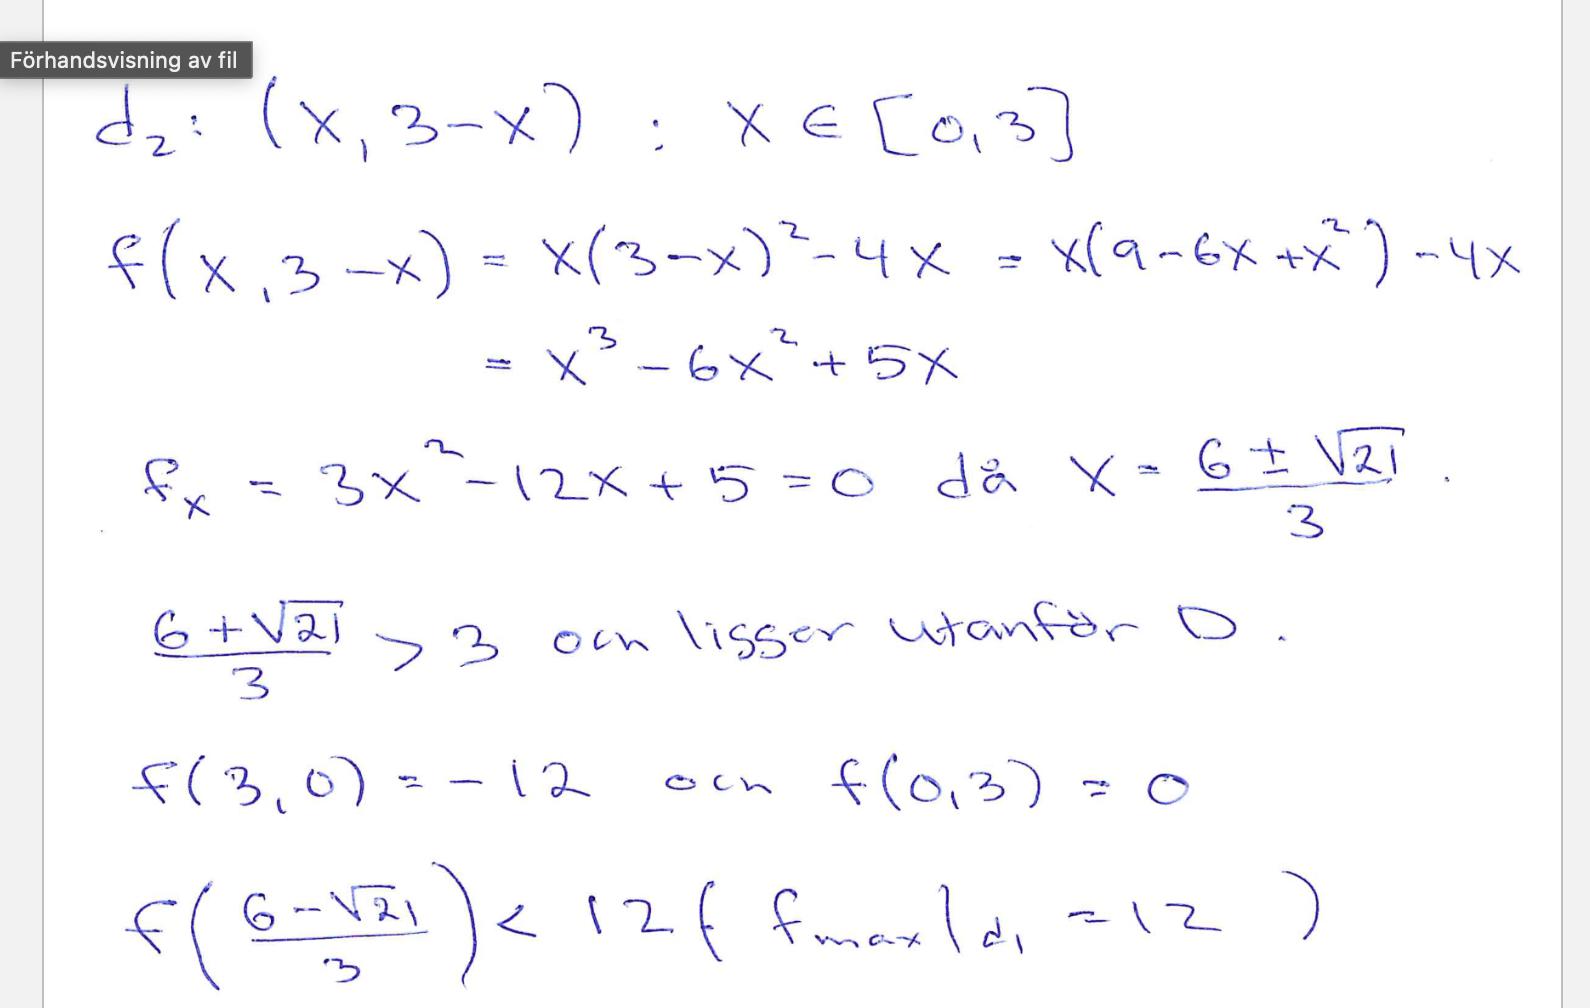 Förhandsvisning av fil
d₂: (x, 3-x) : x ∈ [0,3]
f(x, 3-x) = x(3-x)² - 4x = x(9-6x+x²) - 4x
= x³ - 6x² + 5x
fₓ = 3x² - 12x + 5 = 0 då x = (6 ± √21)/3 .
(6 + √21)/3 > 3 och ligger utanför D.
f(3,0) = -12 och f(0,3) = 0
f((6 - √21)/3) < 12 ( fmax|d₁ = 12 )